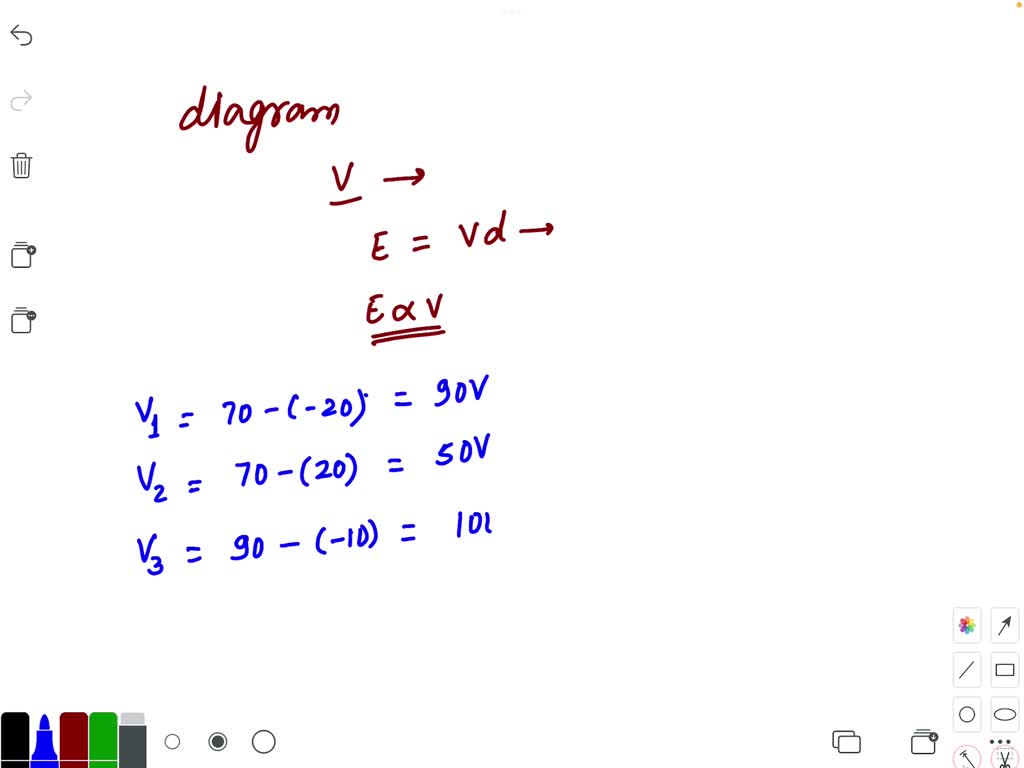 diagram
V →
E = Vd →
E ∝ V
V1 = 70 - (-20) = 90V
V2 = 70 - (20) = 50V
V3 = 90 - (-10) = 10